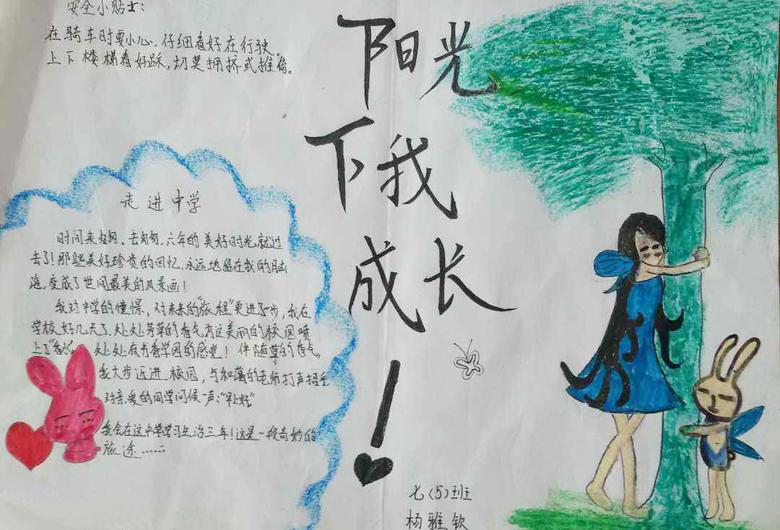 安全小贴士:
在骑车时要小心,仔细看好在行驶。
上下楼梯看好踩,切莫拥挤或推

阳光
下我
成长
!
走进中学
时间来匆匆、去匆匆,六年的美好时光就过
去了!那些美好珍贵的回忆,永远地留在我的脑
海,变成了世间最美的风景画!
我对中学的憧憬,对未来的“旅程”更进了一步,我在
学校好几天了,处处芳草的香气为这美丽的校园喷
上了“香水”,处处在书香学园的感觉!伴随草的香气。
我大步迈进校园,与和蔼的老师打声招呼
对亲爱的同学问候一声:“早上好”
我会在这中学学习生活三年!这是一段奇妙的
旅途……
七(5)班
杨雅钦